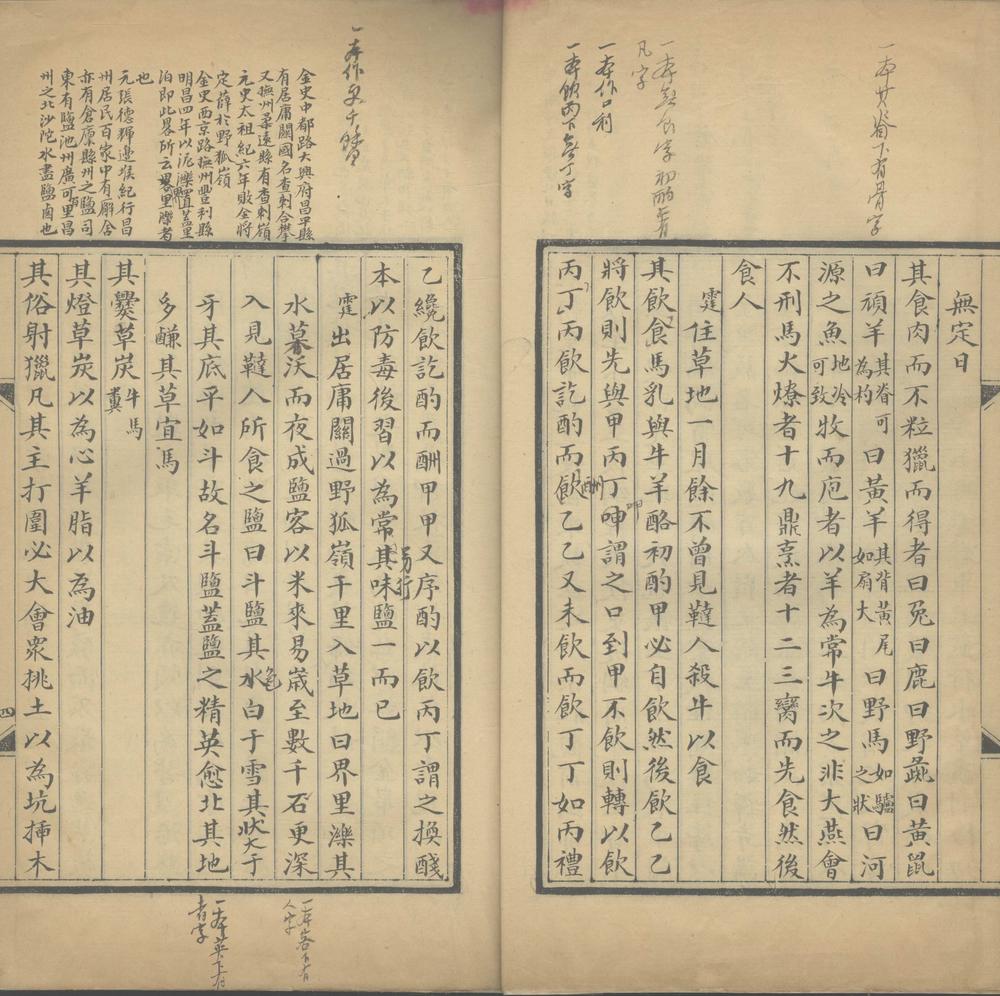 無定日
其食肉而不粒獵而得者曰兔曰鹿曰野彘曰黃鼠
曰頑羊其脊可為杓曰黃羊其背黃尾如扇大曰野馬如驢之狀曰河
源之魚地冷可致牧而庖者以羊為常牛次之非大燕會
不刑馬火燎者十九鼎烹者十二三臠而先食然後
食人
霆住草地一月餘不曾見韃人殺牛以食
其飲食馬乳與牛羊酪初酌甲必自飲然後飲乙乙
將飲則先與甲丙丁呷謂之口到甲不飲則轉以飲
丙丁丙飲訖酌而飲乙乙又未飲而飲丁丁如丙禮
酬
呷
一本其脊下有骨字
凡字
一本作口利
一本飲丙下無丁字
乙纔飲訖酌而酬甲甲又序酌以飲丙丁謂之換醆
本以防毒後習以為常其味鹽一而已
易行
霆出居庸關過野狐嶺千里入草地曰界里濼其
水暮沃而夜成鹽客以米來易歲至數千石更深
入見韃人所食之鹽曰斗鹽其水白于雪其狀大于
色
牙其底平如斗故名斗鹽蓋鹽之精英愈北其地
多鹻其草宜馬
其爨草炭牛馬糞
其燈草炭以為心羊脂以為油
其俗射獵凡其主打圍必大會眾挑土以為坑插木
四
金史中都路大興府昌平縣
有居庸關國名查剌合攀
又撫州柔遠縣有查剌嶺
元史太祖紀六年敗金將
定薛於野狐嶺
金史西京路撫州豐利縣
明昌四年以泥濼置蓋里
泊即此畧所云界里濼者
也
元張德輝邊堠紀行昌
州居民百家中有廨舍
亦有倉廩縣州之鹽司
東有鹽池州廣可百里昌
州之北沙陀水盡鹽鹵也
一本客下有
人字
一本英下有
者字